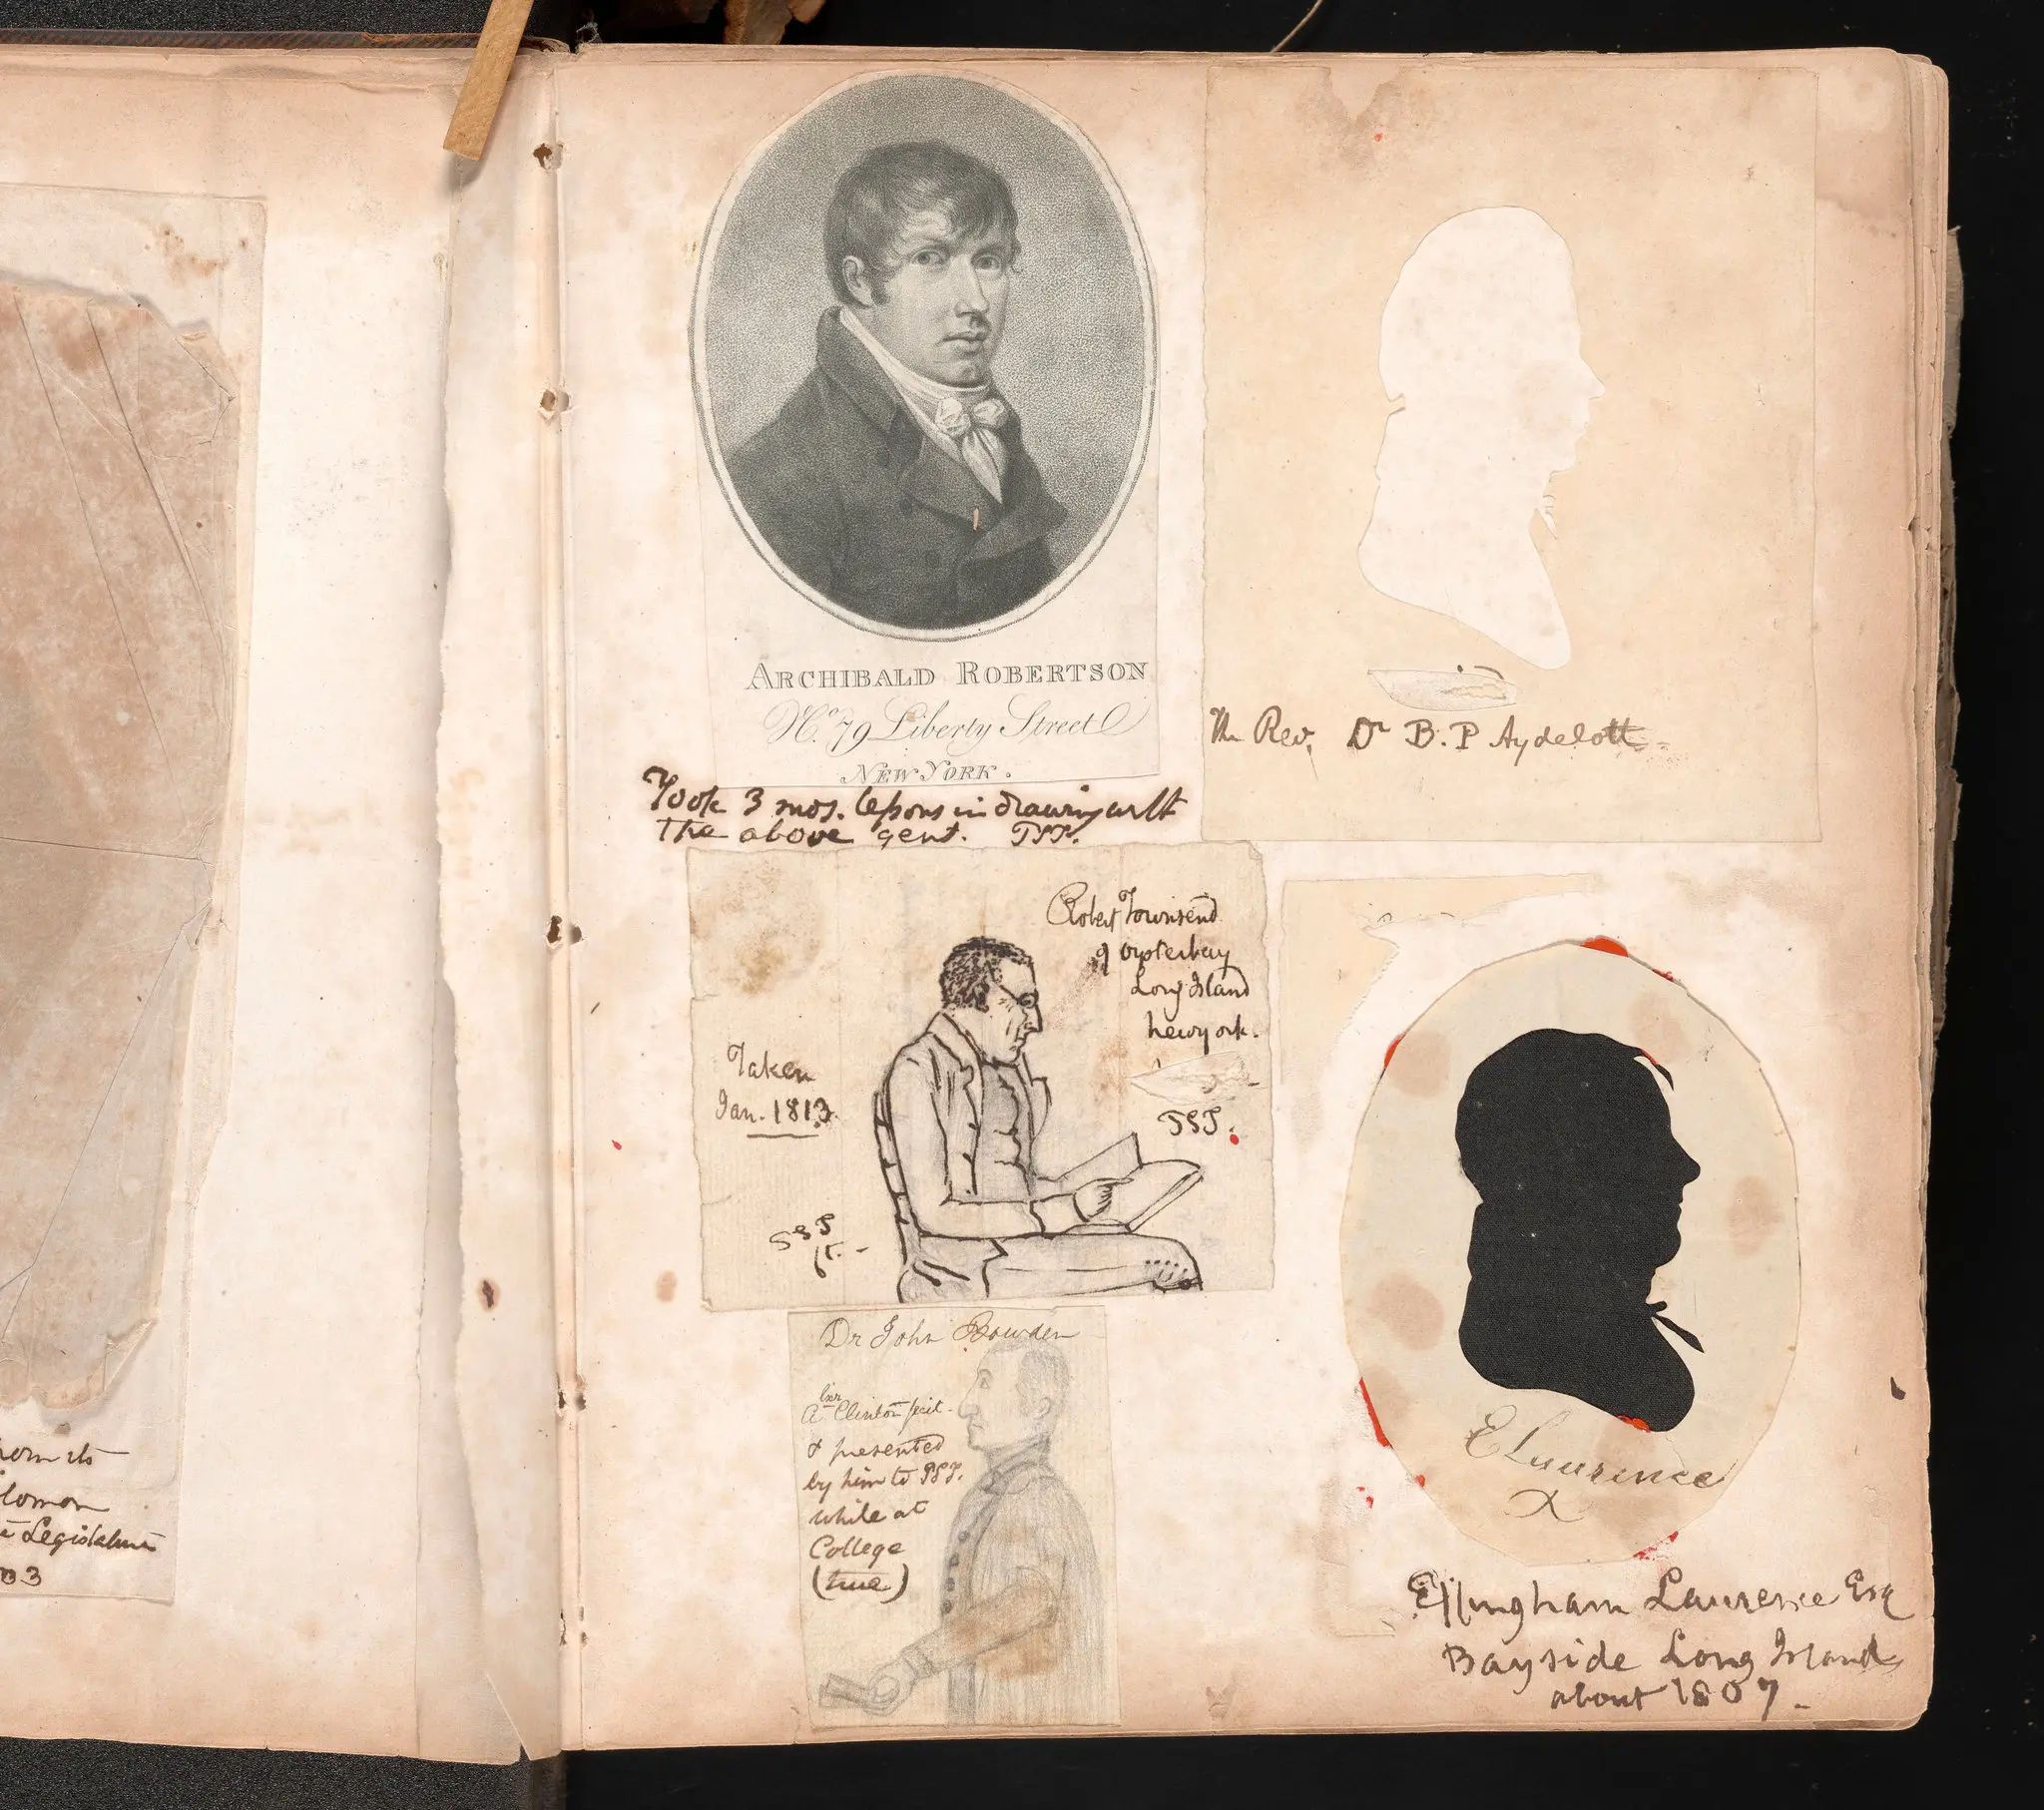 ARCHIBALD ROBERTSON
No. 79 Liberty Street
NEW YORK.
Took 3 mos. lessons in drawing with
the above gent. TST.
The Rev. Dr B. P Aydelott
Robert Townsend
of oysterbay
Long Island
newyork.
TST.
Taken
Jan. 1813.
Dr John Bowden
Clinton fecit
& presented
by him to TST.
while at
College
(true)
E Laurence
Effingham Laurence Esq
Bayside Long Island
about 1807.
lomon
Legislature
03